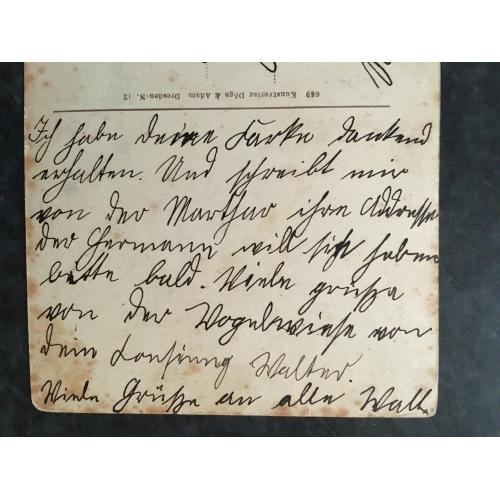 649 Kunstverlag Döge & Adam Dresden-N. 12
Ich habe deine Karke dankend
erhalten. Und schreibt mir
von der Marthar ihre Addresse
der Hermann will sie haben
bette bald. Viele grüße
von der Vogelwiese von
dein Walter.
Viele Grüße an alle Walt.